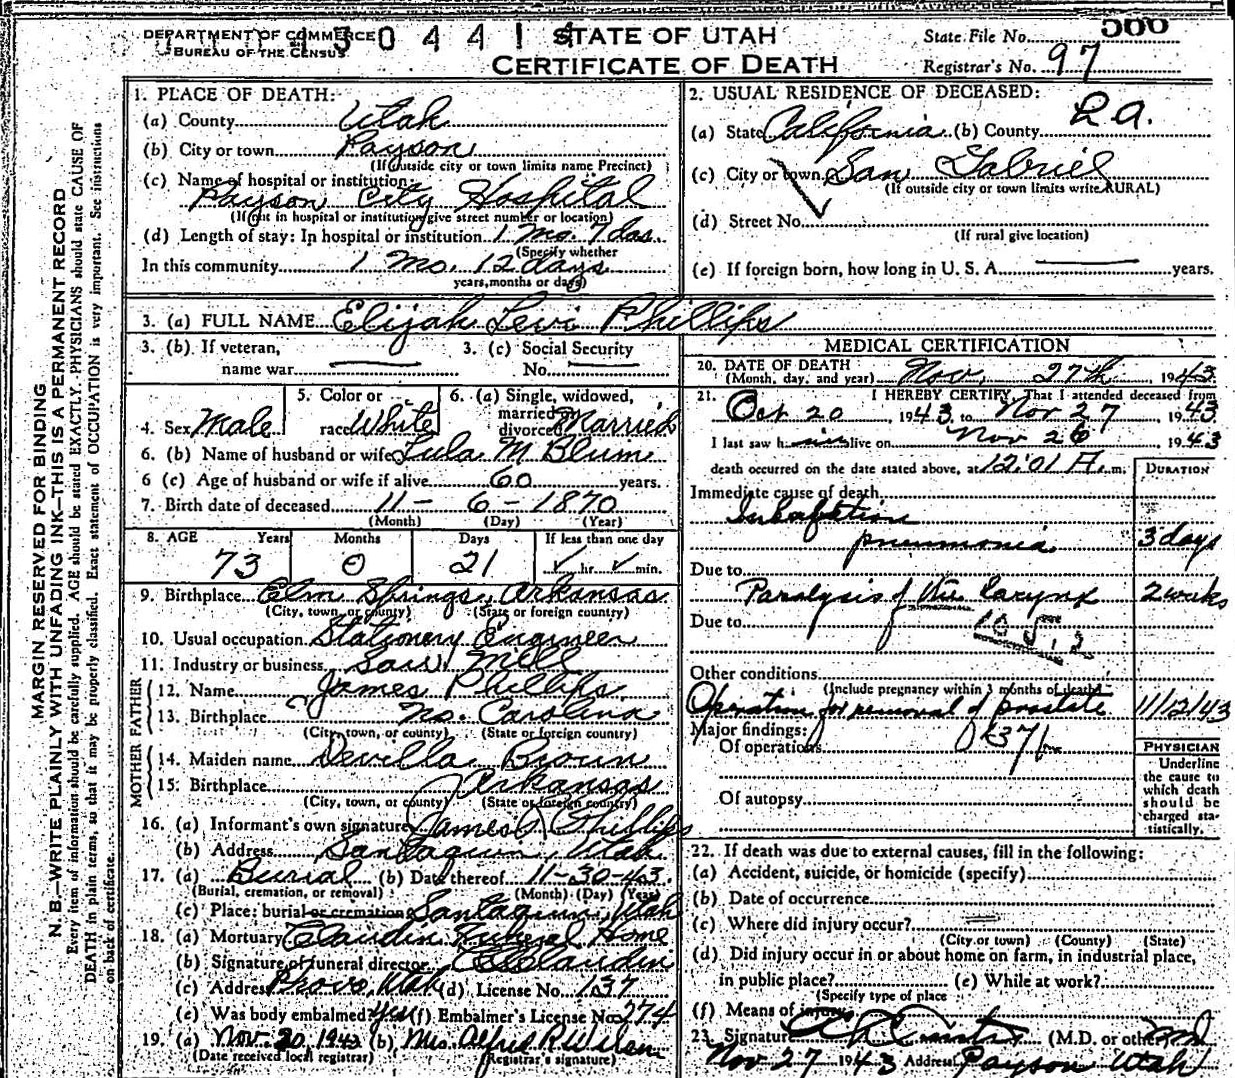 DEPARTMENT OF COMMERCE
BUREAU OF THE CENSUS
STATE OF UTAH
CERTIFICATE OF DEATH
State File No. 500
Registrar's No. 97
MARGIN RESERVED FOR BINDING
N. B.—WRITE PLAINLY WITH UNFADING INK—THIS IS A PERMANENT RECORD
Every item of information should be carefully supplied. AGE should be stated EXACTLY. PHYSICIANS should state CAUSE OF
DEATH in plain terms, so that it may be properly classified. Exact statement of OCCUPATION is very important. See instructions
on back of certificate.
1. PLACE OF DEATH:
(a) County Utah
(b) City or town Payson
(If outside city or town limits name Precinct)
(c) Name of hospital or institution:
Payson City Hospital
(If not in hospital or institution give street number or location)
(d) Length of stay: In hospital or institution 1 mo. 7 das.
(Specify whether
In this community 1 mo. 12 days
years, months or days)
2. USUAL RESIDENCE OF DECEASED:
(a) State California (b) County L.A.
(c) City or town San Gabriel
(If outside city or town limits write RURAL)
(d) Street No.
(If rural give location)
(e) If foreign born, how long in U. S. A. years.
3. (a) FULL NAME Elijah Levi Phillips
3. (b) If veteran,
name war
3. (c) Social Security
No.
4. Sex Male
5. Color or
race White
6. (a) Single, widowed,
married or
divorced Married
6. (b) Name of husband or wife Lula M Blum
6 (c) Age of husband or wife if alive 60 years.
7. Birth date of deceased 11 - 6 - 1870
(Month) (Day) (Year)
8. AGE Years Months Days If less than one day
73 0 21 hr. min.
9. Birthplace Elm Springs, Arkansas
(City, town, or county) (State or foreign country)
10. Usual occupation Stationery Engineer
11. Industry or business Saw Mill
FATHER
12. Name James Phillips
13. Birthplace No. Carolina
(City, town, or county) (State or foreign country)
MOTHER
14. Maiden name Devilla Brown
15. Birthplace Arkansas
(City, town, or county) (State or foreign country)
16. (a) Informant's own signature James Phillips
(b) Address Santaquin, Utah
17. (a) Burial (b) Date thereof 11-30-43
(Burial, cremation, or removal) (Month) (Day) (Year)
(c) Place: burial or cremation Santaquin, Utah
18. (a) Mortuary Claudin Funeral Home
(b) Signature of funeral director Claudin
(c) Address Provo, Utah (d) License No. 137
(e) Was body embalmed? Yes (f) Embalmer's License No. 274
19. (a) Nov. 30 1943 (b) Mrs. Alfred R. Wilson
(Date received local registrar) (Registrar's signature)
MEDICAL CERTIFICATION
20. DATE OF DEATH
(Month, day, and year) Nov. 27th, 1943
21. I HEREBY CERTIFY, That I attended deceased from
Oct 20 1943 to Nov 27, 1943
I last saw him alive on Nov 26, 1943
death occurred on the date stated above, at 12:01 A. m.
DURATION
Immediate cause of death
pneumonia 3 days
Due to
Paralysis of the larynx 2 weeks
Due to
Other conditions
(Include pregnancy within 3 months of death)
Operation for removal of prostate 11/12/43
Major findings:
Of operations
Of autopsy
PHYSICIAN
Underline
the cause to
which death
should be
charged sta-
tistically.
22. If death was due to external causes, fill in the following:
(a) Accident, suicide, or homicide (specify)
(b) Date of occurrence
(c) Where did injury occur?
(City or town) (County) (State)
(d) Did injury occur in or about home on farm, in industrial place,
in public place? (e) While at work?
(Specify type of place
(f) Means of injury
23. Signature (M.D. or other) MD
Nov 27 1943 Address Payson Utah